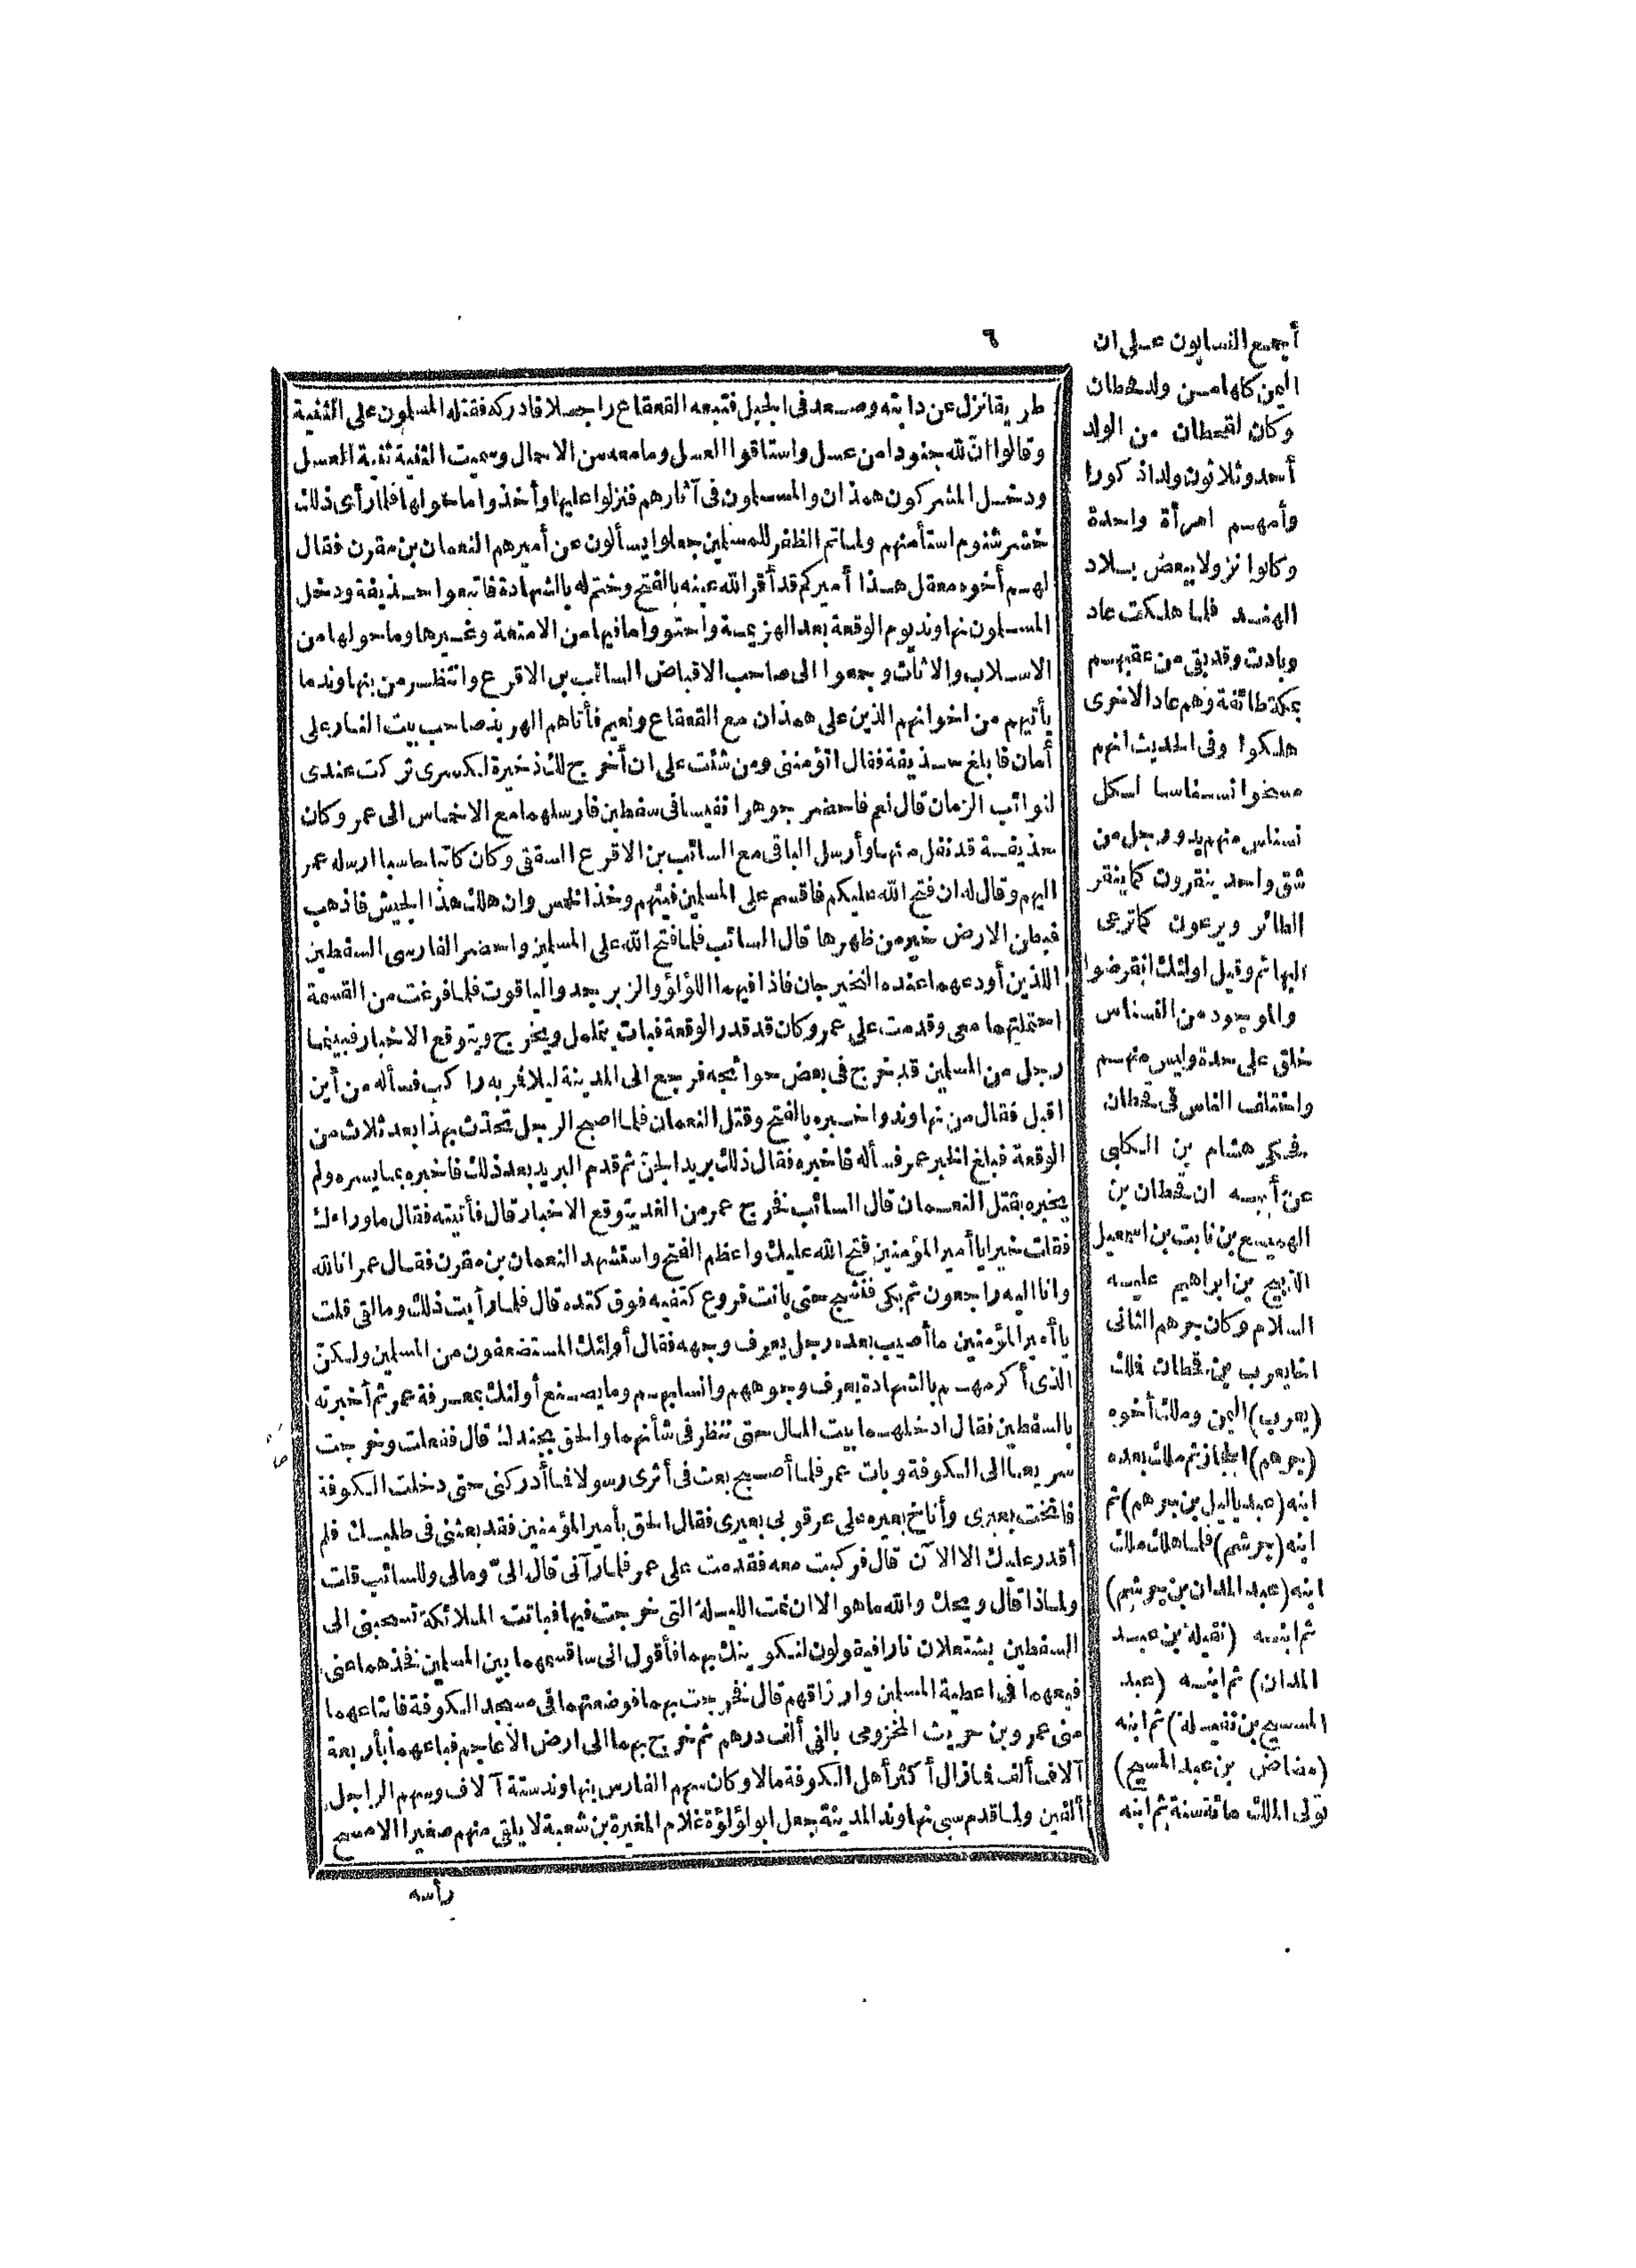 ٦
طريقا نزل عن دابته وصعد في الجبل فتبعه القعقاع راجلا فادركه فقتله المسلمون على الثنية
وقالوا ان لله جنودا من عسل واستاقوا العسل وما معه من الاحمال وسميت الثنية ثنية العسل
ودخل المشركون همذان والمسلمون في آثارهم فنزلوا عليها وأخذوا ما حولها فلما رأى ذلك
خشرشنوم استأمنهم ولما تم الظفر للمسلمين جعلوا يسألون عن أميرهم النعمان بن مقرن فقال
لهم أخوه معقل هذا أميركم قد أقر الله عينه بالفتح وختم له بالشهادة فاتبعوا حذيفة ودخل
المسلمون نهاوند يوم الوقعة بعد الهزيمة واحتووا ما فيها من الامتعة وغيرها وما حولها من
الاسلاب والاثاث وجمعوا الى صاحب الاقباض السائب بن الاقرع وانتظر من بنهاوند ما
يأتيهم من اخوانهم الذين على همذان مع القعقاع ونعيم فأتاهم الهربذ صاحب بيت النار على
أمان فابلغ حذيفة فقال اتؤمننى ومن شئت على ان أخرج لك ذخيرة لكسرى تركت عندى
لنوائب الزمان قال نعم فاحضر جوهرا نفيسا فى سفطين فارسلهما مع الاخماس الى عمر وكان
حذيفة قد نفل منها وأرسل الباقى مع السائب بن الاقرع الثقفى وكان كاتبا حاسبا ارسله عمر
اليهم وقال له ان فتح الله عليكم فاقسم على المسلمين فيئهم وخذ الخمس وان هلك هذا الجيش فاذهب
فبطن الارض خير من ظهرها قال السائب فلما فتح الله على المسلمين واحضر الفارسى السفطين
اللذين أودعهما عنده النخيرجان فاذا فيهما اللؤلؤ والزبرجد والياقوت فلما فرغت من القسمة
احتملتهما معى وقدمت على عمر وكان قد قدر الوقعة فبات يتململ ويخرج ويتوقع الاخبار فبينما
رجل من المسلمين قد خرج فى بعض حوائجه فرجع الى المدينة ليلا فمر به راكب فسأله من أين
اقبل فقال من نهاوند واخبره بالفتح وقتل النعمان فلما اصبح الرجل تحدث بهذا بعد ثلاث من
الوقعة فبلغ الخبر عمر فسأله فاخبره فقال ذلك بريد الجن ثم قدم البريد بعد ذلك فاخبره بما يسره ولم
يخبره بقتل النعمان قال السائب فخرج عمر من الغد يتوقع الاخبار قال فأتيته فقال ما وراءك
فقلت خيرا يا أمير المؤمنين فتح الله عليك واعظم الفتح واستشهد النعمان بن مقرن فقال عمر انا لله
وانا اليه راجعون ثم بكى فنشج حتى بانت فروع كتفيه فوق كتده قال فلما رأيت ذلك وما لقى قلت
يا أمير المؤمنين ما أصيب بعده رجل يعرف وجهه فقال أولئك المستضعفون من المسلمين ولكن
الذى أكرمهم بالشهادة يعرف وجوههم وانسابهم وما يصنع أولئك بمعرفة عمر ثم أخبرته
بالسفطين فقال ادخلهما بيت المال حتى ننظر فى شأنهما والحق بجندك قال ففعلت وخرجت
سريعا الى الكوفة وبات عمر فلما أصبح بعث فى أثرى رسولا فما أدركنى حتى دخلت الكوفة
فانخت بعيرى وأناخ بعيره على عرقوبى بعيرى فقال الحق بأمير المؤمنين فقد بعثنى فى طلبك فلم
أقدر عليك الا الآن قال فركبت معه فقدمت على عمر فلما رآنى قال الىّ ومالى وللسائب قلت
ولماذا قال ويحك والله ما هو الا ان نمت الليلة التى خرجت فيها فباتت الملائكة تسحبنى الى
السفطين يشتعلان نارا فيقولون لنكوينك بهما فأقول انى ساقسمهما بين المسلمين فخذهما عنى
فبعهما فى اعطية المسلمين وارزاقهم قال فخرجت بهما فوضعتهما فى مسجد الكوفة فابتاعهما
منى عمرو بن حريث المخزومى بالفى ألف درهم ثم خرج بهما الى ارض الاعاجم فباعهما بأربعة
آلاف ألف فما زال أكثر أهل الكوفة مالا وكان سهم الفارس بنهاوند ستة آلاف وسهم الراجل
ألفين ولما قدم سبى نهاوند المدينة جعل ابو لؤلؤة غلام المغيرة بن شعبة لا يلقى منهم صغيرا الا مسح
رأسه
أجمع النسابون على ان
اليمن كلها من ولد قحطان
وكان لقحطان من الولد
أحد وثلاثون ولدا ذكورا
وأمهم امرأة واحدة
وكانوا نزولا ببعض بلاد
الهند فلما هلكت عاد
وبادت وقد بقى من عقبهم
بمكة طائفة وهم عاد الاخرى
هلكوا وفى الحديث انهم
مسخوا نسناسا لكل
نسناس منهم يد ورجل من
شق واحد ينقرون كما ينقر
الطائر ويرعون كما ترعى
البهائم وقيل اولئك انقرضوا
والموجود من النسناس
خلق على حدة وليس منهم
واختلف الناس فى قحطان
فحكى هشام بن الكلبى
عن أبيه ان قحطان بن
الهميسع بن نابت بن اسمعيل
الذبيح بن ابراهيم عليه
السلام وكان جرهم الثانى
اخا يعرب بن قحطان فملك
(يعرب) اليمن وملك أخوه
(جرهم) الحجاز ثم ملك بعده
ابنه (عبد ياليل بن جرهم) ثم
ابنه (جرشم) فلما هلك ملك
ابنه (عبد المدان بن جرشم)
ثم ابنه (نفيلة بن عبد
المدان) ثم ابنه (عبد
المسيح بن نفيلة) ثم ابنه
(مضاض بن عبد المسيح)
تولى الملك مائة سنة ثم ابنه